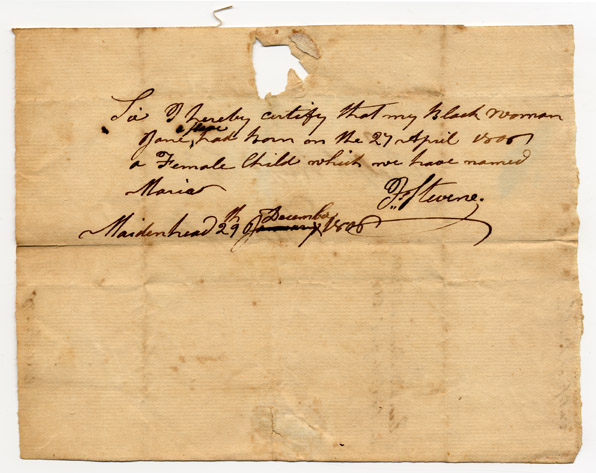 Sir I hereby certify that my Black woman
Jane, a slave had born on the 27 April 1806
a Female Child which we have named
Maria
Maidenhead 29th December January 1806